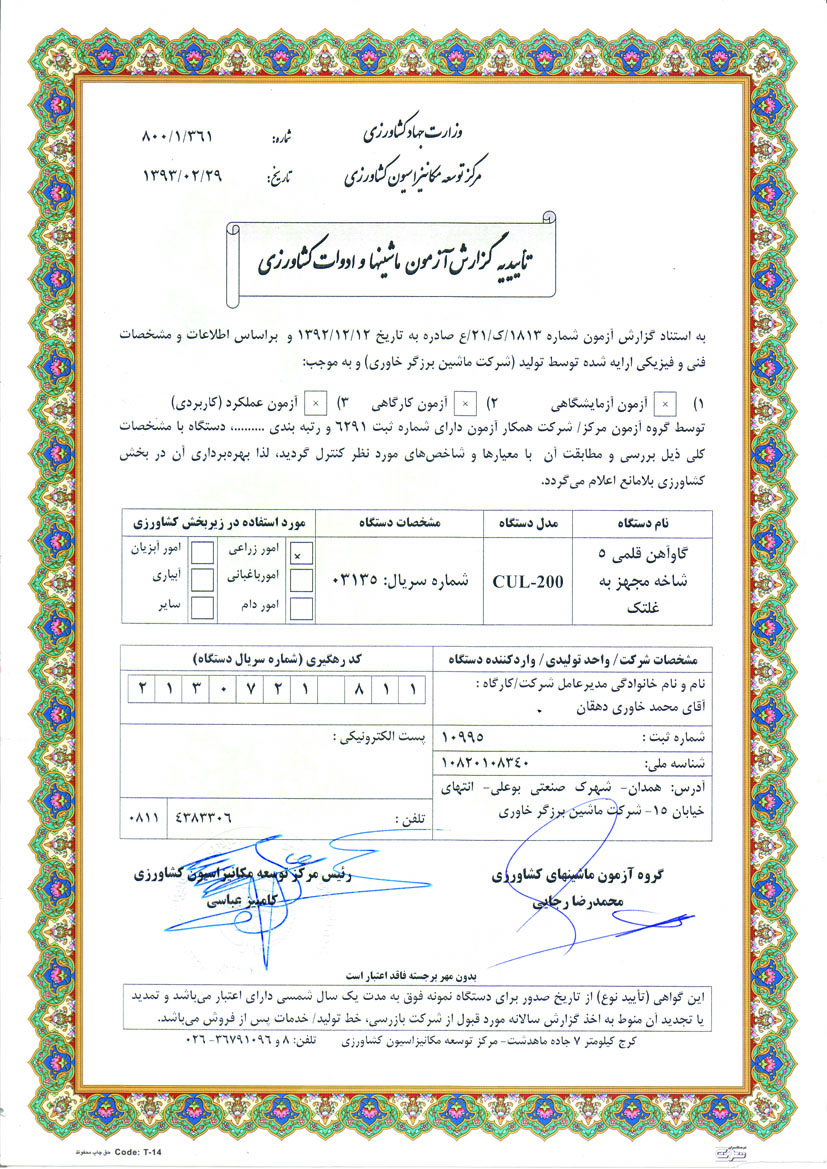 وزارت جهاد کشاورزی
شماره: ۸۰۰/۱/۳۶۱
مرکز توسعه مکانیزاسیون کشاورزی
تاریخ: ۱۳۹۳/۰۲/۲۹
تاییدیه گزارش آزمون ماشینها و ادوات کشاورزی
به استناد گزارش آزمون شماره ۱۸۱۳/ک/۲۱/ع صادره به تاریخ ۱۳۹۲/۱۲/۱۲ و براساس اطلاعات و مشخصات
فنی و فیزیکی ارایه شده توسط تولید (شرکت ماشین برزگر خاوری) و به موجب:
۱) × آزمون آزمایشگاهی ۲) × آزمون کارگاهی ۳) × آزمون عملکرد (کاربردی)
توسط گروه آزمون مرکز/ شرکت همکار آزمون دارای شماره ثبت ۶۲۹۱ و رتبه بندی .........، دستگاه با مشخصات
کلی ذیل بررسی و مطابقت آن با معیارها و شاخص‌های مورد نظر کنترل گردید، لذا بهره‌برداری آن در بخش
کشاورزی بلامانع اعلام می‌گردد.
نام دستگاه مدل دستگاه مشخصات دستگاه مورد استفاده در زیربخش کشاورزی
گاوآهن قلمی ۵
شاخه مجهز به
غلتک
CUL-200
شماره سریال: ۰۳۱۳۵
× امور زراعی امور آبزیان
امورباغبانی آبیاری
امور دام سایر
مشخصات شرکت/ واحد تولیدی/ واردکننده دستگاه
کد رهگیری (شماره سریال دستگاه)
نام و نام خانوادگی مدیرعامل شرکت/کارگاه :
آقای محمد خاوری دهقان
۲ ۱ ۳ ۰ ۷ ۲ ۱ ۸ ۱ ۱
شماره ثبت : ۱۰۹۹۵
پست الکترونیکی :
شناسه ملی: ۱۰۸۲۰۱۰۸۳۴۰
آدرس: همدان- شهرک صنعتی بوعلی- انتهای
خیابان ۱۵- شرکت ماشین برزگر خاوری
تلفن : ۴۳۸۳۳۰۶ ۰۸۱۱
گروه آزمون ماشینهای کشاورزی
محمدرضا رجایی
رئیس مرکز توسعه مکانیزاسیون کشاورزی
کامبیز عباسی
بدون مهر برجسته فاقد اعتبار است
این گواهی (تأیید نوع) از تاریخ صدور برای دستگاه نمونه فوق به مدت یک سال شمسی دارای اعتبار می‌باشد و تمدید
یا تجدید آن منوط به اخذ گزارش سالانه مورد قبول از شرکت بازرسی، خط تولید/ خدمات پس از فروش می‌باشد.
کرج کیلومتر ۷ جاده ماهدشت- مرکز توسعه مکانیزاسیون کشاورزی تلفن: ۸ و ۳۶۷۹۱۰۹۶- ۰۲۶
Code: T-14 حق چاپ محفوظ